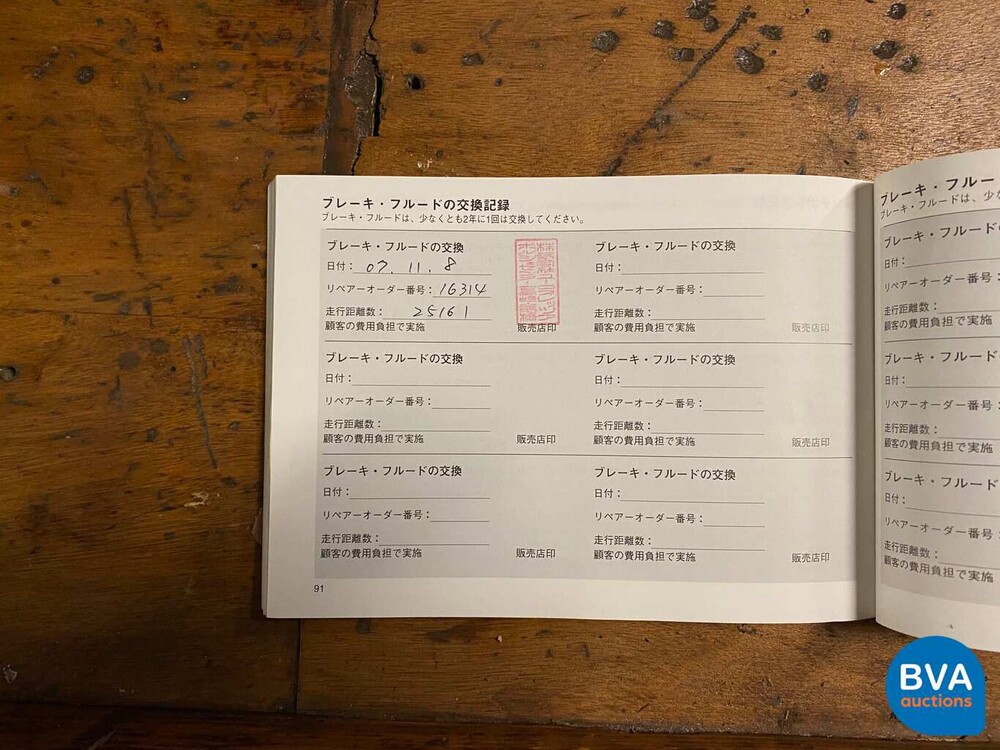 ブレーキ・フルードの交換記録
ブレーキ・フルードは、少なくとも2年に1回は交換してください。
ブレーキ・フルードの交換
日付: 07. 11. 8
リペアーオーダー番号: 16314
走行距離数: 25161
顧客の費用負担で実施 販売店印
ブレーキ・フルードの交換
日付:
リペアーオーダー番号:
走行距離数:
顧客の費用負担で実施 販売店印
ブレーキ・フルードの交換
日付:
リペアーオーダー番号:
走行距離数:
顧客の費用負担で実施 販売店印
ブレーキ・フルードの交換
日付:
リペアーオーダー番号:
走行距離数:
顧客の費用負担で実施 販売店印
ブレーキ・フルードの交換
日付:
リペアーオーダー番号:
走行距離数:
顧客の費用負担で実施 販売店印
ブレーキ・フルードの交換
日付:
リペアーオーダー番号:
走行距離数:
顧客の費用負担で実施 販売店印
91
ブレーキ・フルー
ブレーキ・フルードは、少な
ブレーキ・フルードの
日付:
リペアーオーダー番号:
走行距離数:
顧客の費用負担で実施
ブレーキ・フルードの
日付:
リペアーオーダー番号:
走行距離数:
顧客の費用負担で実施
ブレーキ・フルードの
日付:
リペアーオーダー番号:
走行距離数:
顧客の費用負担で実施
BVA
auctions